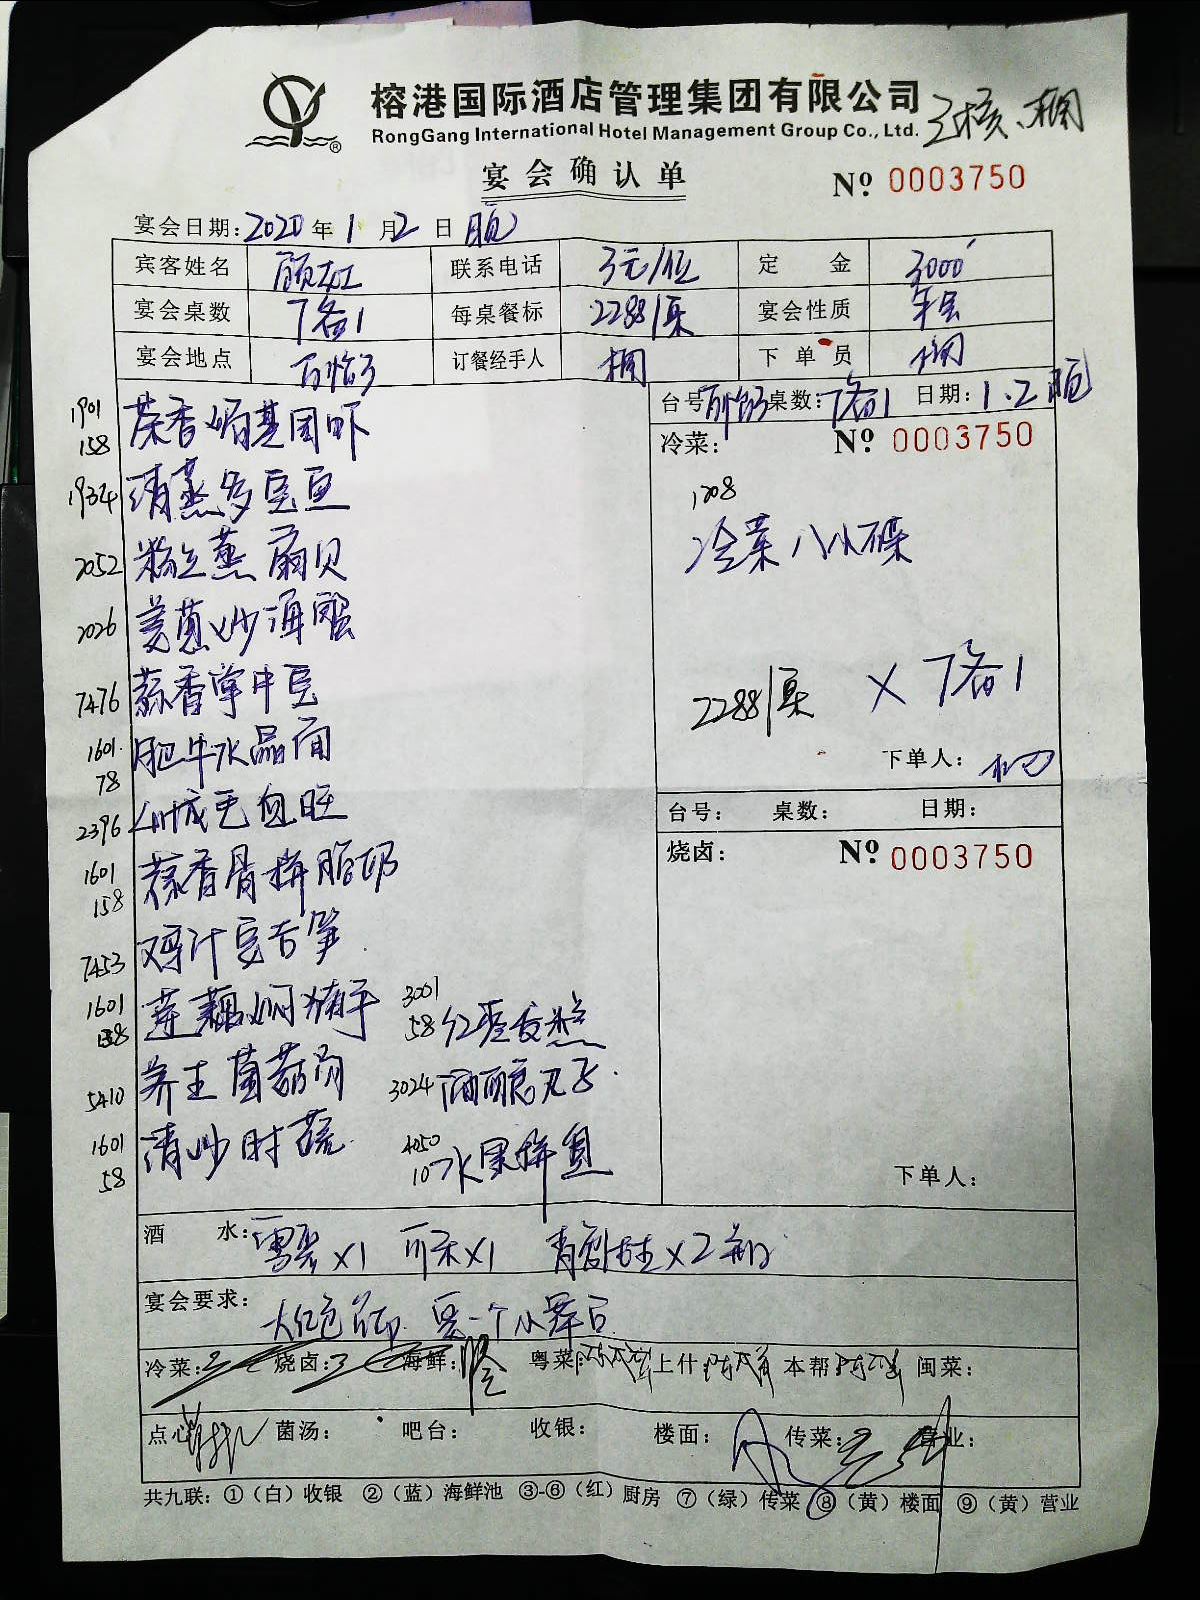 榕港国际酒店管理集团有限公司
RongGang International Hotel Management Group Co., Ltd.
宴会确认单
№ 0003750
宴会日期: 2020 年 1 月 2 日 晚
宾客姓名 联系电话 3元/位 定金 3000
宴会桌数 7备1 每桌餐标 2288/桌 宴会性质 年会
宴会地点 订餐经手人 下单员
台号 桌数: 7备1 日期: 1.2 晚
1901 158 茶香焗基围虾
1934 清蒸多宝鱼
2052 粉丝蒸扇贝
2026 姜葱炒海蟹
7476 蒜香掌中宝
1601 78 肥牛水晶面
2396 毛血旺
1601 158 蒜香骨拼脂奶
7453 鸡汁
1601 158 莲藕焖猪手
5410 养生菌菇汤
1601 58 清炒时蔬
3001 58 红枣发糕
3024 酒酿丸子
4050 10 水果拼盘
冷菜: № 0003750
1208
冷菜八小碟
2288/桌 × 7备1
下单人:
台号: 桌数: 日期:
烧卤: № 0003750
下单人:
酒水: 雪碧×1 可乐×1 ×2
宴会要求: 大红色 要一个小舞台
冷菜: 烧卤: 海鲜: 粤菜: 上什: 本帮: 闽菜:
点心: 菌汤: 吧台: 收银: 楼面: 传菜: 营业:
共九联: ①(白)收银 ②(蓝)海鲜池 ③-⑥(红)厨房 ⑦(绿)传菜 ⑧(黄)楼面 ⑨(黄)营业